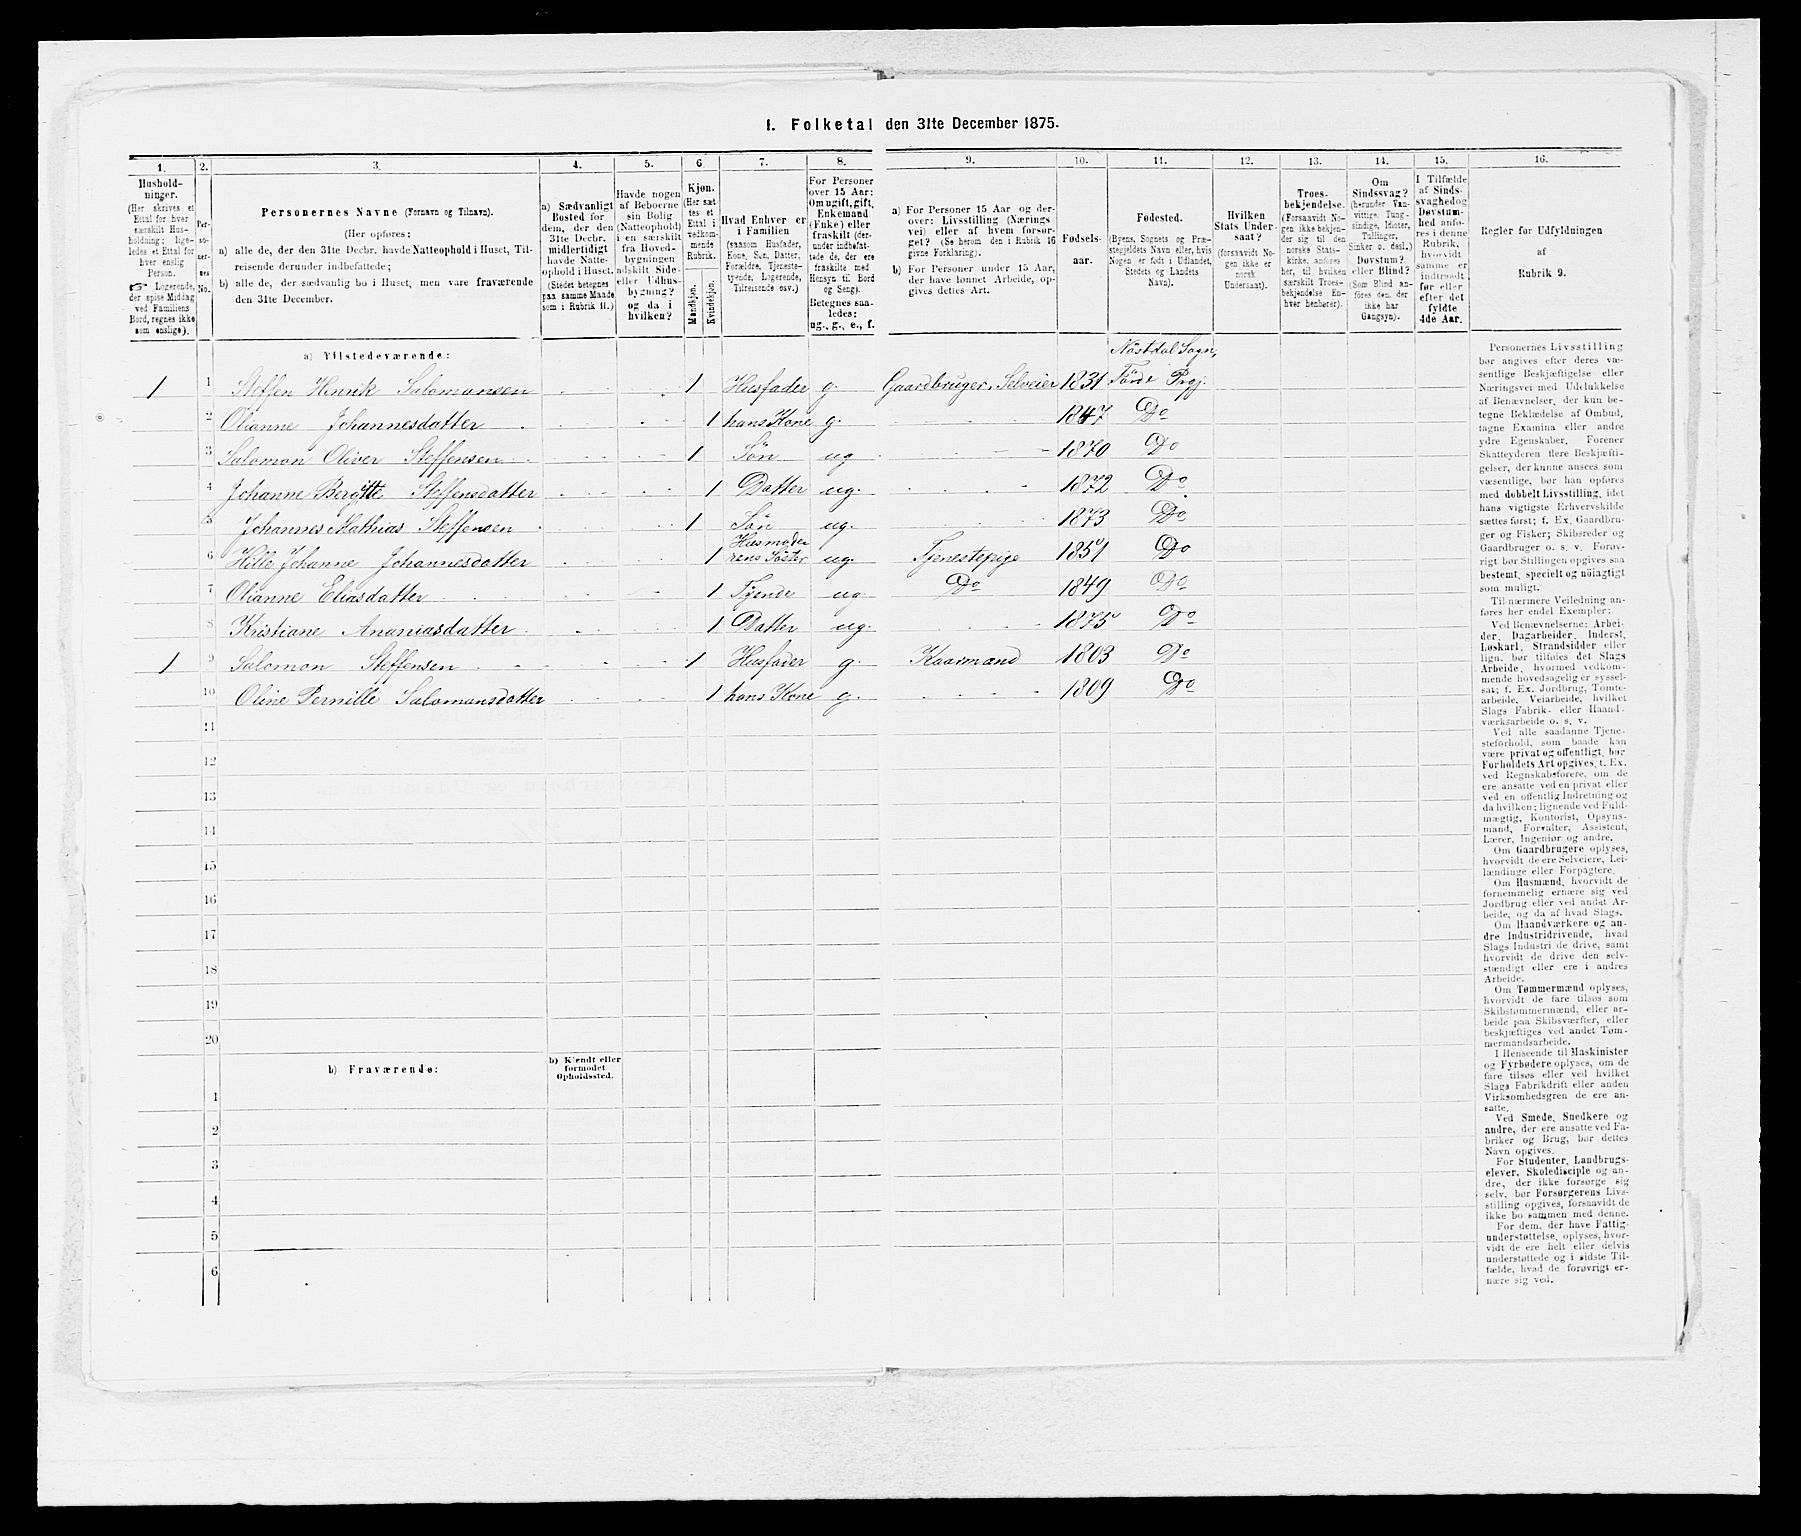 I. Folketal den 31te December 1875.
1. 2. 3. 4. 5. 6. 7. 8. 9. 10. 11. 12. 13. 14. 15. 16.
Hushold-
ninger.
(Her skrives et
Ettal for hver
særskilt Hus-
holdning; lige-
ledes et Ettal for
hver enslig
Person.
☞ Logerende,
der spise Middag
ved Familiens
Bord, regnes ikke
som enslige).
Per-
so-
ner-
nes
No.
Personernes Navne (Fornavn og Tilnavn).
(Her opføres:
a) alle de, der den 31te Decbr. havde Natteophold i Huset, Til-
reisende derunder indbefattede;
b) alle de, der sædvanlig bo i Huset, men vare fraværende
den 31te December.
a) Sædvanligt
Bosted for
dem, der den
31te Decbr.
midlertidigt
havde Natte-
ophold i Huset.
(Stedet betegnes
paa samme Maade
som i Rubrik 11.)
Havde nogen
af Beboerne
sin Bolig
(Natteophold)
i en særskilt
fra Hoved-
bygningen
adskilt Side-
eller Udhus-
bygning?
og da i
hvilken?
Kjøn.
(Her sæt-
tes et
Ettal i
vedkom-
mende
Rubrik.
Mandkjøn.
Kvindekjøn.
Hvad Enhver er
i Familien
(saasom Husfader,
Kone, Søn, Datter,
Forældre, Tjeneste-
tyende, Logerende,
Tilreisende osv.)
For Personer
over 15 Aar:
Om ugift, gift,
Enkemand
(Enke) eller
fraskilt (der-
under indbefat-
tede de, der ere
fraskilte med
Hensyn til Bord
og Seng).
Betegnes saa-
ledes:
ug., g., e., f.
a) For Personer 15 Aar og der-
over: Livsstilling (Nærings-
vei) eller af hvem forsør-
get? (Se herom den i Rubrik 16
givne Forklaring).
b) For Personer under 15 Aar,
der have lønnet Arbeide, op-
gives dettes Art.
Fødsels-
aar.
Fødested.
(Byens, Sognets og Præ-
stegjeldets Navn eller, hvis
Nogen er født i Udlandet,
Stedets og Landets
Navn).
Hvilken
Stats Under-
saat?
(forsaavidt No-
gen ikke er
norsk
Undersaat).
Troes-
bekjendelse.
(Forsaavidt No-
gen ikke bekjen-
der sig til den
norske Stats-
kirke, anføres
her, til hvilken
særskilt Troes-
bekjendelse En-
hver henhører).
Om
Sindssvag?
(herunder Van-
vittige, Tung-
sindige, Idioter,
Tullinger,
Sinker o. desl.)
Døvstum?
eller Blind?
(Som Blind an-
føres den, der
ikke har
Gangsyn).
I Tilfælde
af Sinds-
svaghed og
Døvstum-
hed anfø-
res i denne
Rubrik,
hvorvidt
samme er
indtraadt
før eller
efter det
fyldte
4de Aar.
Regler for Udfyldningen
af
Rubrik 9.
a) Tilstedeværende: Nöstdal Sogn,
1 1 Steffen Henrik Salomonsen 1 Husfader g. Gaardbruger, Selveier 1831 Förde Prgj.
2 Olianne Johannesdatter 1 hans Kone g. 1847 Do
3 Salomon Oliver Steffensen 1 Sön ug 1870 Do
4 Johanne Bergitte Steffensdatter 1 Datter ug. 1872 Do
5 Johannes Mathias Steffensen 1 Sön ug. 1873 Do
6 Hille Johanne Johannesdatter 1 Husmode rens Söster ug. Tjenestepige 1851 Do
7 Olianne Eliasdatter 1 Tjende ug. Do 1849 Do
8 Kristiane Ananiasdatter 1 Datter ug. 1875 Do
1 9 Salomon Steffensen 1 Husfader g. Kaarmand 1803 Do
10 Oline Pernille Salomonsdatter 1 hans Kone g. 1809 Do
11
12
13
14
15
16
17
18
19
20
b) Fraværende:
b) Kjendt eller
formodet
Opholdssted.
1
2
3
4
5
6
Personernes Livsstilling
bør angives efter deres væ-
sentlige Beskjæftigelse eller
Næringsvei med Udelukkelse
af Benævnelser, der kun be-
tegne Beklædelse af Ombud,
tagne Examina eller andre
ydre Egenskaber. Forener
Skatteyderen flere Beskjæfti-
gelser, der kunne ansees som
væsentlige, bør han opføres
med dobbelt Livsstilling, idet
hans vigtigste Erhvervskilde
sættes først; f. Ex. Gaardbru-
ger og Fisker; Skibsreder og
Gaardbruger o. s. v. Forøv-
rigt bør Stillingen opgives saa
bestemt, specielt og nöiagtigt
som muligt.
Til nærmere Veiledning an-
føres her endel Exempler:
Ved Benævnelserne: Arbei-
der, Dagarbeider, Inderst,
Løskarl, Strandsidder eller
lign. bør tilføies det Slags
Arbeide, hvormed vedkom-
mende hovedsagelig er syssel-
sat; f. Ex. Jordbrug, Tomte-
arbeide, Veiarbeide, hvilket
Slags Fabrik- eller Haand-
værksarbeide o. s. v.
Ved alle saadanne Tjene-
steforhold, som baade kan
være privat og offentligt, bør
Forholdets Art opgives, t. Ex.
ved Regnskabsførere, om de
ere ansatte ved en privat eller
ved en offentlig Indretning og
da hvilken; lignende ved Fuld-
mægtig, Kontorist, Opsyns-
mand, Forvalter, Assistent,
Lærer, Ingeniør og andre.
Om Gaardbrugere oplyses,
hvorvidt de ere Selveiere, Lei-
lændinge eller Forpagtere.
Om Husmænd, hvorvidt de
fornemmelig ernære sig ved
Jordbrug eller ved andet Ar-
beide, og da af hvad Slags.
Om Haandværkere og an-
dre Industridrivende, hvad
Slags Industri de drive, samt
hvorvidt de drive den selv-
stændigt eller ere i andres
Arbeide.
Om Tømmermænd oplyses,
hvorvidt de fare tilsøs som
Skibstømmermænd, eller ar-
beide paa Skibsværfter, eller
beskjæftiges ved andet Tøm-
mermandsarbeide.
I Henseende til Maskinister
og Fyrbødere oplyses, om de
fare tilsøs eller ved hvilket
Slags Fabrikdrift eller anden
Virksomhedsgren de ere an-
satte.
Ved Smede, Snedkere og
andre, der ere ansatte ved Fa-
briker og Brug, bør dettes
Navn opgives.
For Studenter, Landbrugs-
elever, Skoledisciple og an-
dre, der ikke forsørge sig
selv, bør Forsørgerens Livs-
stilling opgives, forsaavidt de
ikke bo sammen med denne.
For dem, der have Fattig-
understøttelse, oplyses, hvor-
vidt de ere helt eller delvis
understøttede og i sidste Til-
fælde, hvad de forøvrigt er-
nære sig ved.